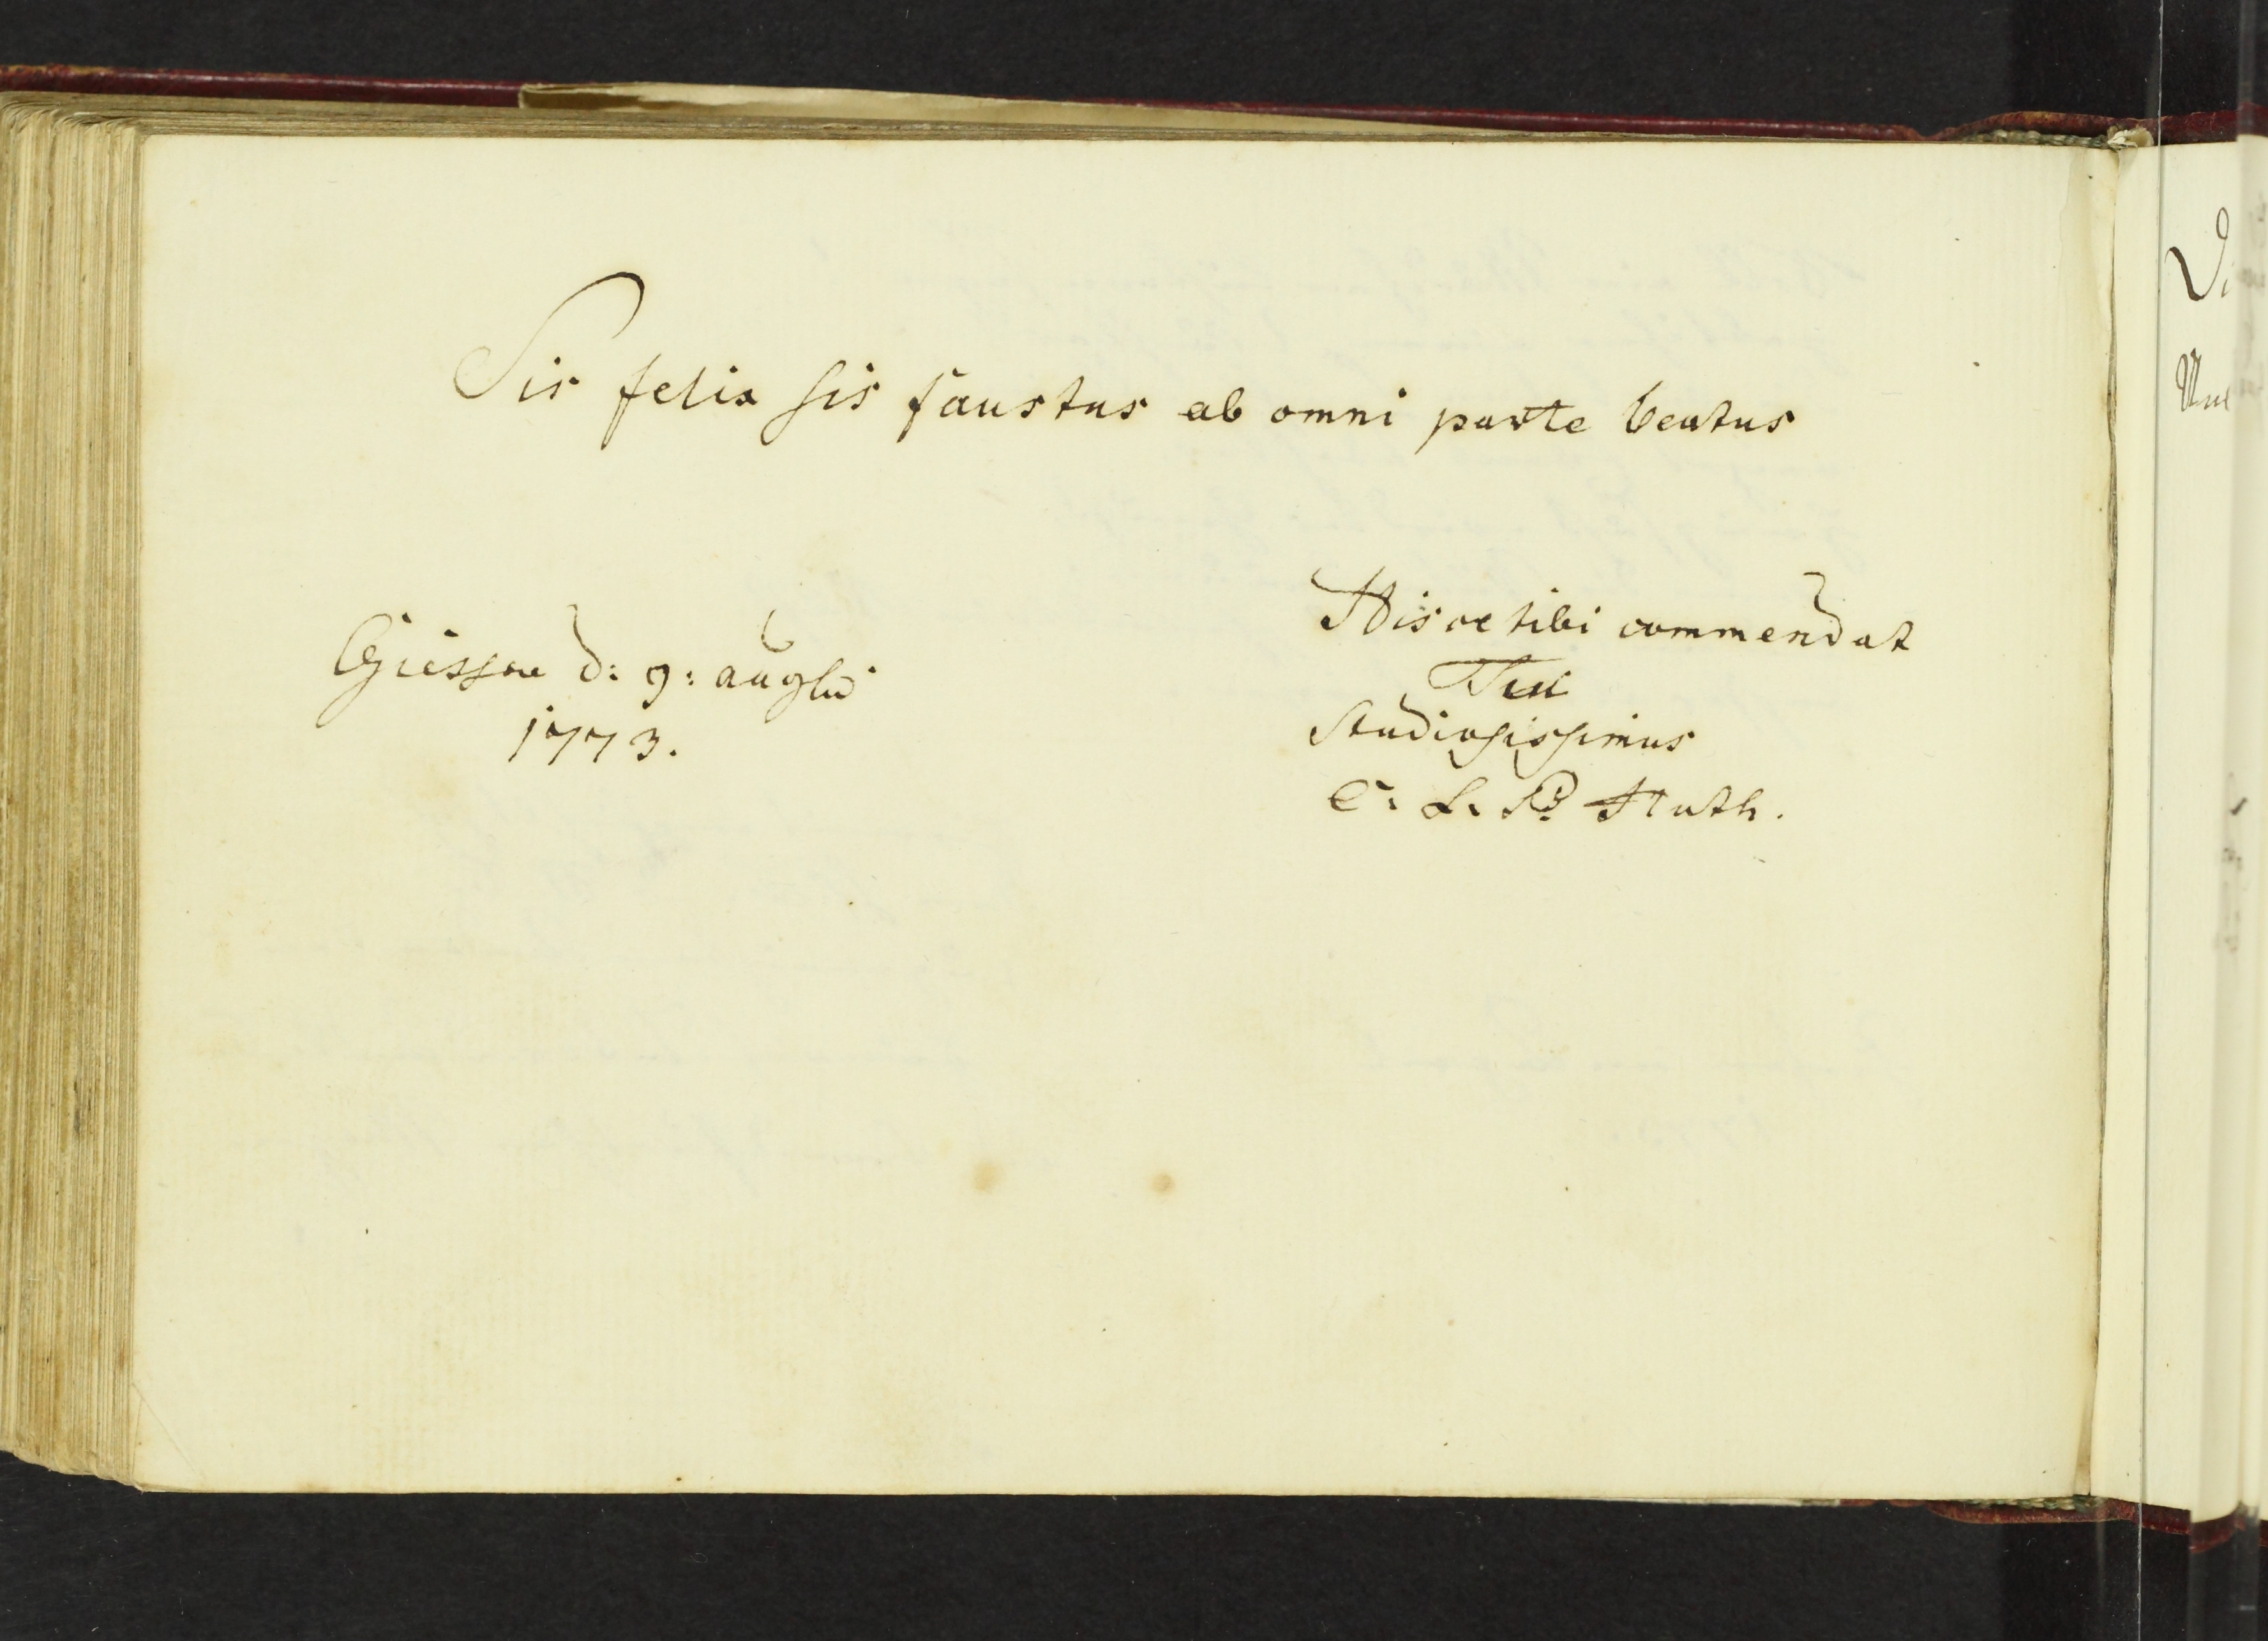 Sis felix sis faustus ab omni parte beatus
Giessae d: 9: aug
1773.
Hisce tibi commendat
Tui
Studiosissimus
C: L. Huth.